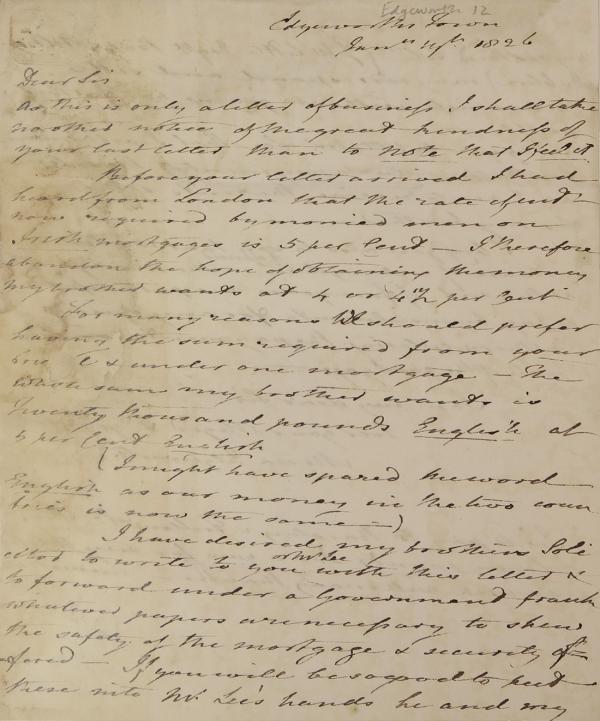 Edgeworth 12
Edgeworths Town
Jan 1826
Dear Sir
As this is only a letter of business I shall take
no other notice of the great kindness of
your last letter than to note that I feel it
Before your letter arrived I had
heard from London that the rate of int
now required by monied men on
Irish mortgages is 5 per Cent — I therefore
abandon the hope of obtaining the money
my brother wants at 4 or 4½ per Cent
For many reasons We should prefer
having the sum required from your
& under one mortgage — The
whole sum my brother wants is
Twenty thousand pounds English at
5 per Cent English
(I might have spared the word
English as our money in the two coun
tries is now the same —)
I have desired my brothers Soli
or Mr Lee
citor to write to you with this letter &
to forward under a Government frank
whatever papers are necessary to shew
the safety of the mortgage & security of=
fered — If you will be so good to put
these into Mr Lee's hands he and my